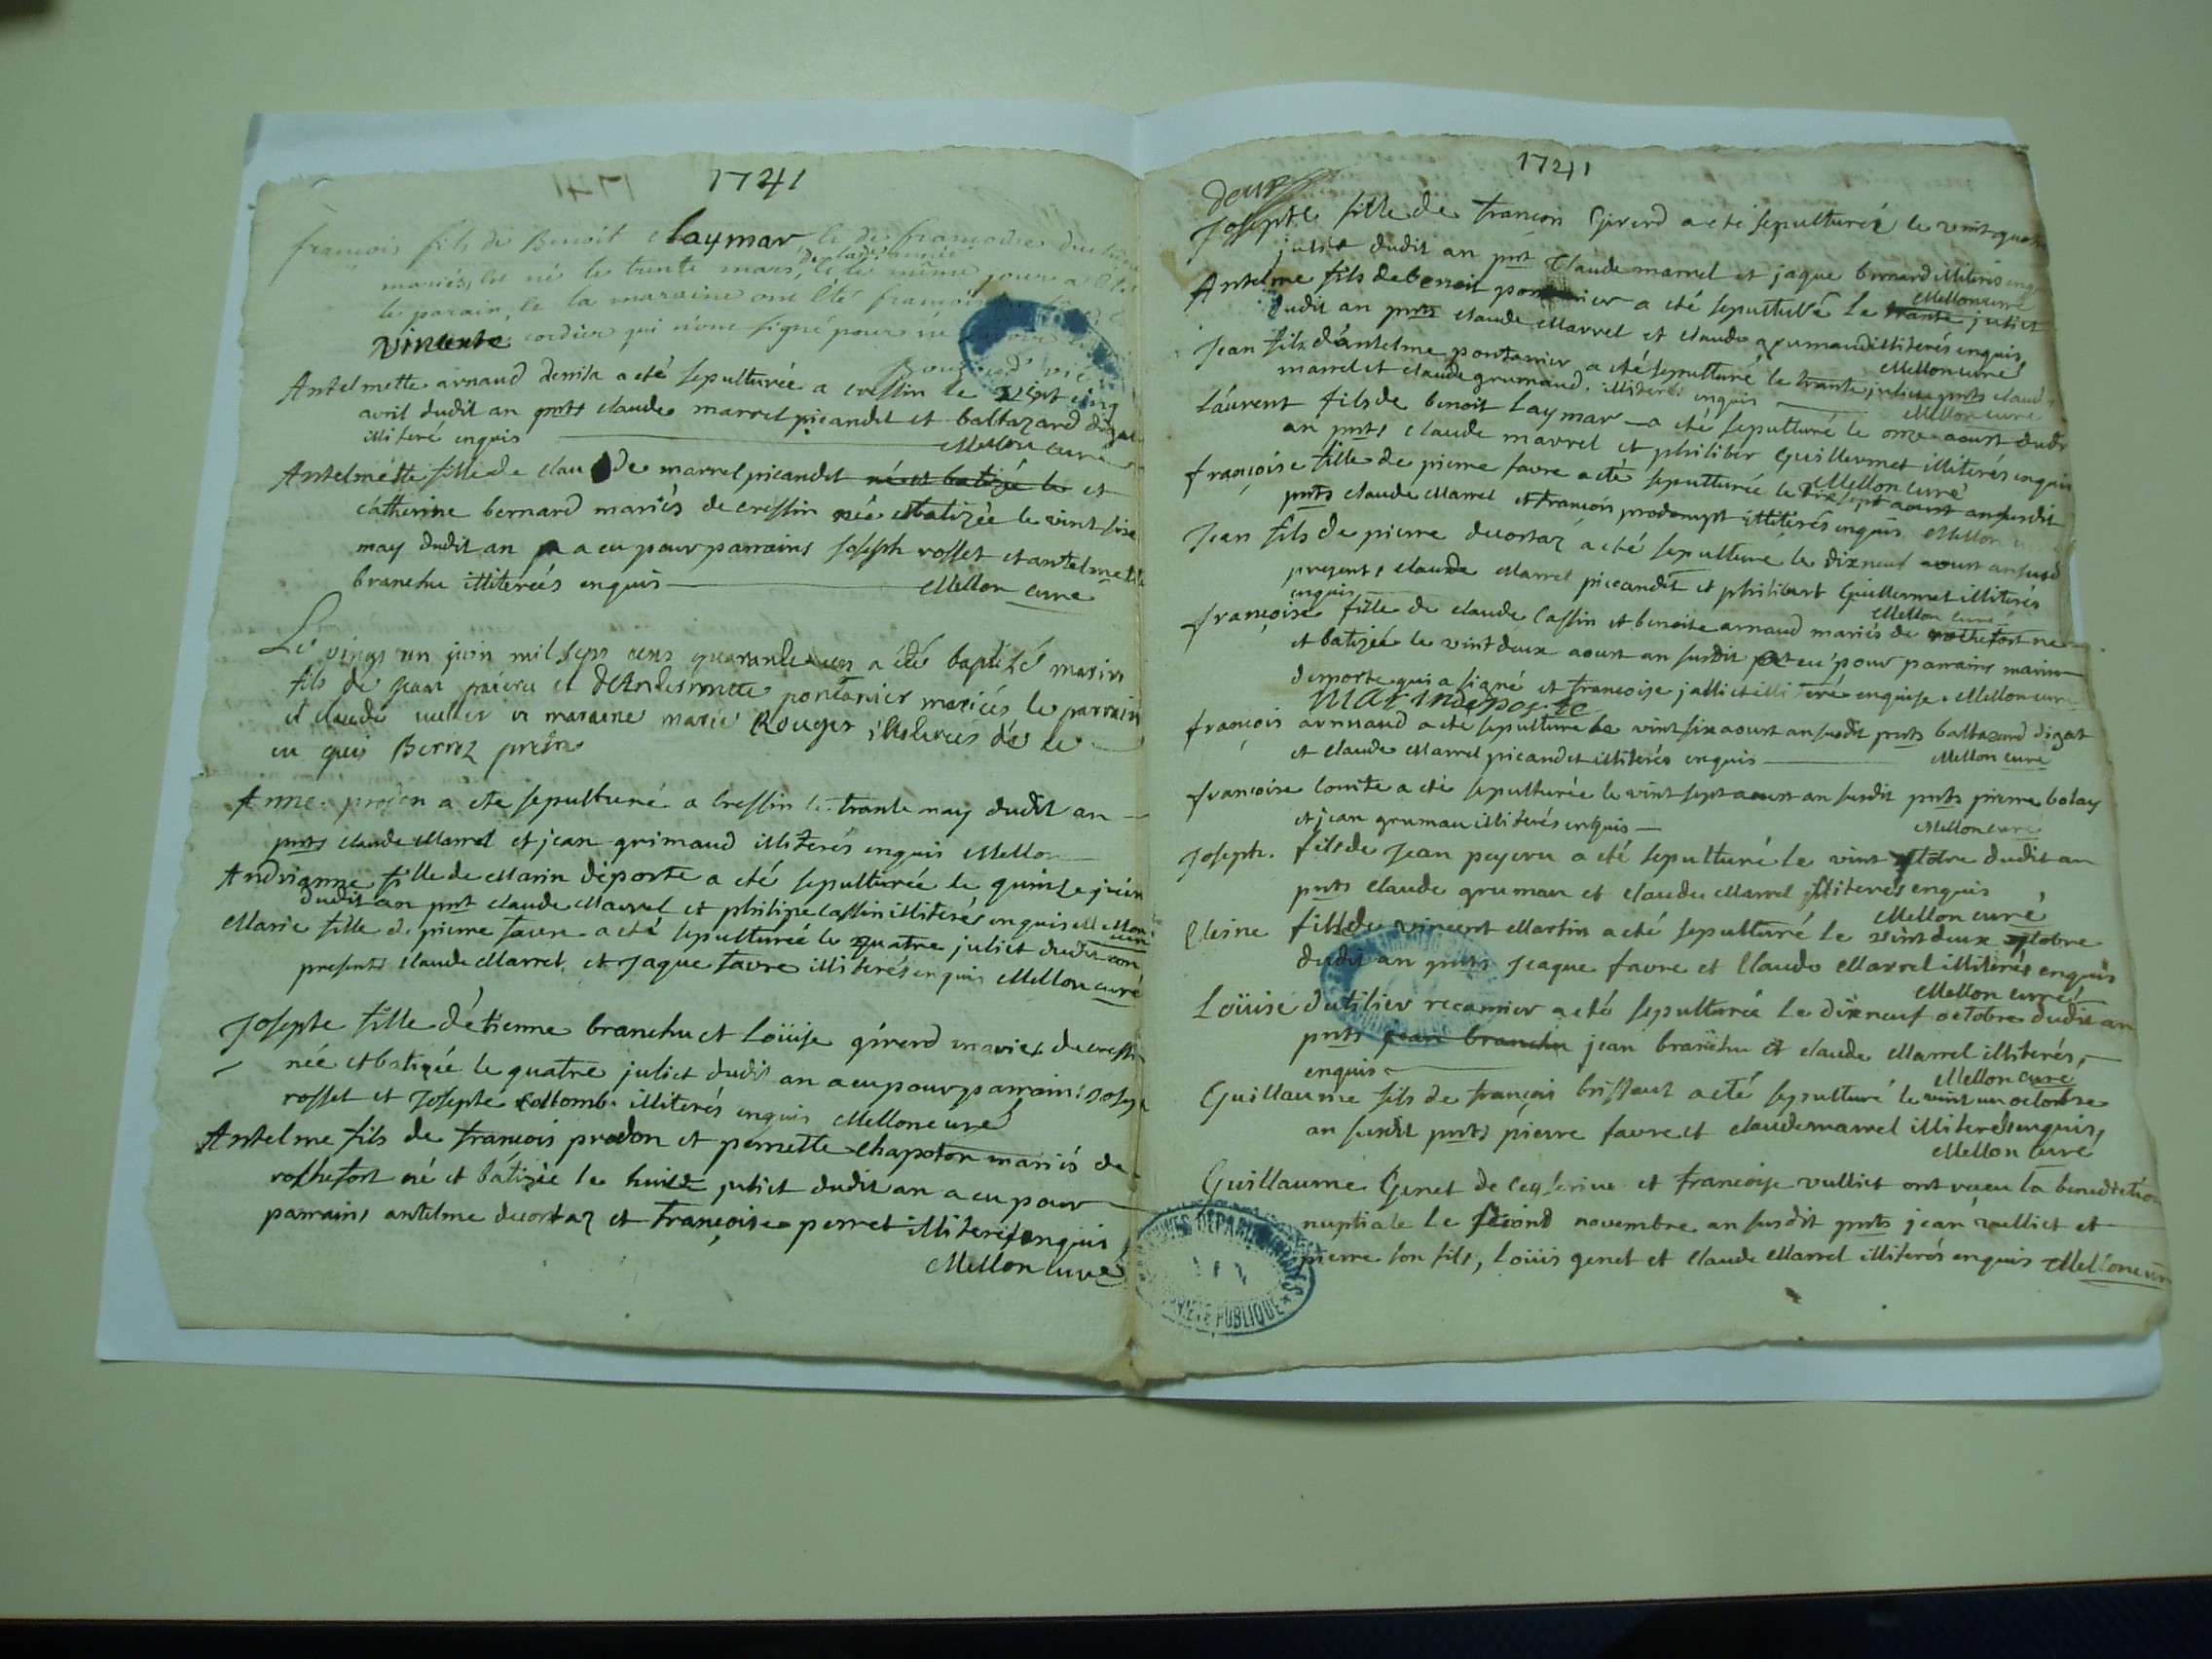 1741
françois fils de Benoit claymar et de françoise
mariés, est né le trente mars, de lad. année et le même jour a été
le parain, et la maraine ont été françois
vincente cordier qui n'ont signé pour ne
Antelmette arnaud denisa a eté sepulturée a cressin le vint cinq
avril dudit an pnts claude marrel picandet et baltazard digat
illiteré enquis Mellon curé
Antelmette fille de claude marrel picandet née et batizée le et
catherine bernard mariés de cressin née et batizée le vint sixe
may dudit an a eu pour parrains Joseph rosset et antelmette
branchu illiterés enquis Mellon curé
Le vingt un juin mil sept cens quarante un a été baptisé marin
fils de jean et d'Anthelmette pontanier mariés le parrain
et claude et maraine marie Rouger illiterés de ce
en quis Berroz prêtre
Anne prodon a ete sepulturé a Cressin le trante may dudit an
pnts claude Marrel et jean grimaud illiterés enquis Mellon
Andrianne fille de Marin deporte a eté sepulturée le quinse juin
dudit an pnt claude Marrel et philipe Cassin illiterés enquis Mellon
curé
Marie fille de pierre favre a eté sepulturée le quatre juliet dudit an
presents claude Marrel, et Jaque favre illiterés enquis Mellon curé
Josepte fille d'étienne branchu et Loüise girerd mariés de cressin
née et batizée le quatre juliet dudit an a eu pour parrains Joseph
rosset et Josepte Collomb illiterés enquis Mellon curé
Antelme fils de francois prodon et pernette chapoton mariés de
rochefort né et batizée le huict juliet dudit an a eu pour
parrains antelme decortaz et françoise perret illiterés enquis
Mellon curé
1741
Josepte fille de francois Girerd a eté sepulturée le vint quatre
juliet dudit an pnt Claude marrel et jaque bernard illiterés enquis
Mellon curé
Antelme fils de benoit pontanier a eté sepulturé le trante juliet
dudit an pnts claude Marrel et claude grumaud illiterés enquis
Mellon curé
Jean fils d'antelme pontanier a eté sepulturé le trante juliet pnts claude
marrel et claude grumaud illiterés enquis Mellon curé
Laurent fils de benoit Laymar a eté sepulturé le onze aoust dudit
an pnts claude marrel et philiber Guillermet illiterés enquis
Mellon curé
françoise fille de pierre favre a eté sepulturée le aoust an susdit
pnts claude Marrel et francois prodompt illiterés enquis Mellon
Jean fils de pierre decortaz a eté sepulturé le dixneuf aoust an susd
presents claude Marrel piccandet et philibert Guillermet illiterés
enquis Mellon curé
françoise fille de claude Cassin et benoite arnaud mariés de rochefort née
et batizée le vint deux aoust an susdit eu pour parrains marin
deporte qui a signé et francoise jalliet illiteré enquise Mellon curé
Marin deporte
françois arnnaud a eté sepulturé le vint six aoust an susdit pnts baltazard digat
et claude Marrel picandet illiterés enquis Mellon curé
francoise Comte a eté sepulturée le vint sept aoust an susdit pnts pierre bolay
et jean grumau illiterés enquis Mellon curé
Joseph fils de Jean payeru a eté sepulturé le vint dudit an
pnts claude gruman et claude Marrel illiterés enquis
Mellon curé
fils de vincent Martin a eté sepulturé le vint deux
dudit an pnts Jeaque favre et Claude Marrel illiterés enquis
Mellon curé
Loüise dutilier recamier a eté sepulturée le dixneuf octobre dudit an
pnts jean branchu jean branchu et claude Marrel illiterés,
enquis Mellon curé
Guillaume fils de françois brissaut a eté sepulturé le vint un octobre
an susdit pnts pierre favre et claude marrel illiterés enquis,
Mellon curé
Guillaume Genet de Ceyserieu et francoise vulliet ont receu la benediction
nuptiale le second novembre an susdit pnts jean vuilliet et
pierre son fils, Loüis genet et Claude Marrel illiterés enquis Mellon curé
ARCHIVES DEPARTEMENTALES
PROPRIETE PUBLIQUE